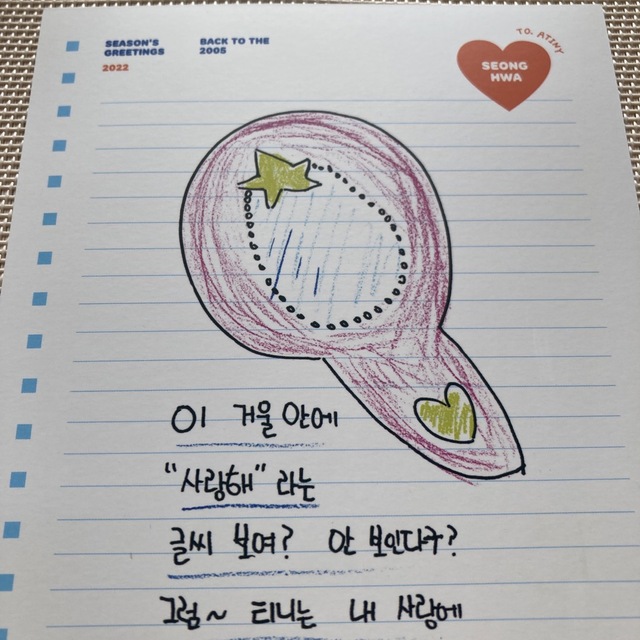 SEASON'S
GREETINGS
2022
BACK TO THE
2005
TO. ATINY
SEONG
HWA
이 거울 안에
"사랑해" 라는
글씨 보여? 안 보인다구?
그럼~ 티니는 내 사랑에